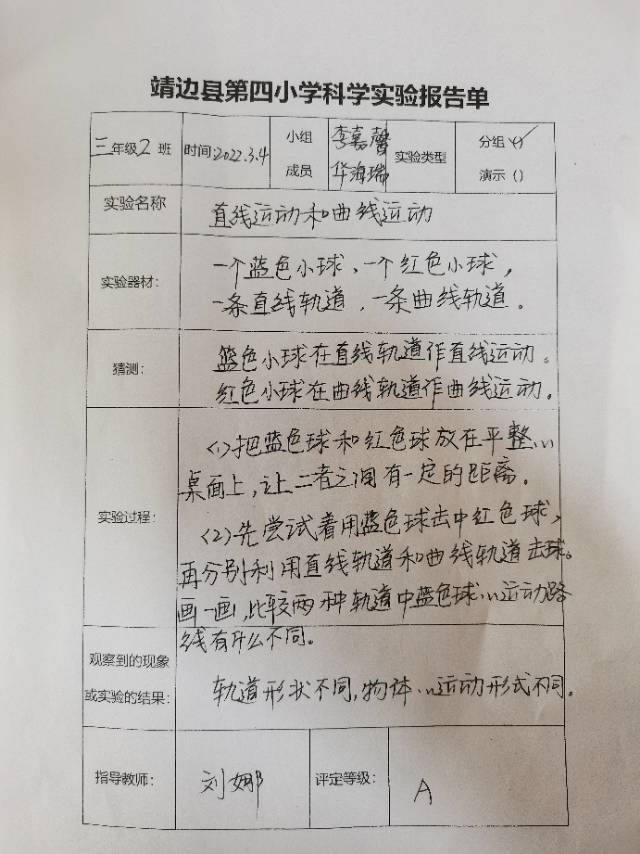 靖边县第四小学科学实验报告单
三年级2班 时间:2022.3.4 小组成员 李嘉馨 华海瑞 实验类型 分组(✓) 演示()
实验名称 直线运动和曲线运动
实验器材: 一个蓝色小球、一个红色小球,
一条直线轨道,一条曲线轨道。
猜测: 蓝色小球在直线轨道作直线运动。
红色小球在曲线轨道作曲线运动。
实验过程: (1)把蓝色球和红色球放在平整的
桌面上,让二者之间有一定的距离。
(2)先尝试着用蓝色球击中红色球,
再分别利用直线轨道和曲线轨道击球。
画一画,比较两种轨道中蓝色球的运动路
线有什么不同。
观察到的现象
或实验的结果: 轨道形状不同,物体的运动形式不同。
指导教师: 刘娜 评定等级: A